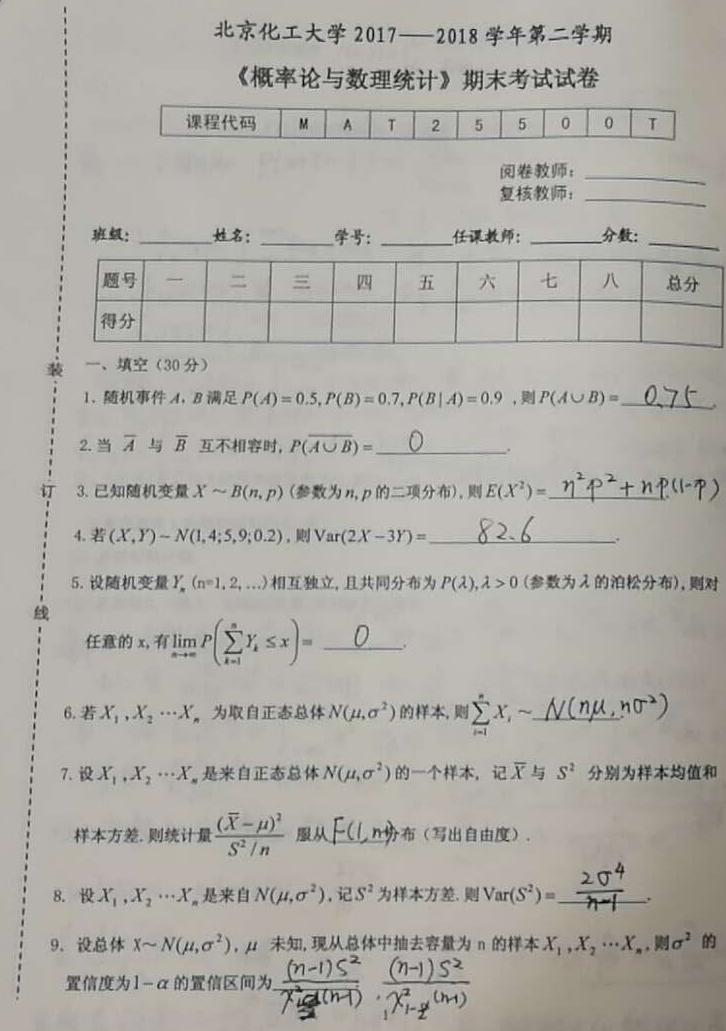 北京化工大学 2017——2018 学年第二学期
《概率论与数理统计》期末考试试卷
课程代码 M A T 2 5 5 0 0 T
阅卷教师：
复核教师：
班级： 姓名： 学号： 任课教师： 分数：
题号 一 二 三 四 五 六 七 八 总分
得分
装
一、填空（30 分）
1. 随机事件 A, B 满足 P(A) = 0.5, P(B) = 0.7, P(B|A) = 0.9 , 则 P(A∪B) = 0.75 .
2. 当 A̅ 与 B̅ 互不相容时, P(\overline{A∪B}) = 0 .
订
3. 已知随机变量 X ~ B(n, p) (参数为 n, p 的二项分布), 则 E(X²) = n²p² + np(1-p)
4. 若 (X,Y) ~ N(1,4;5,9;0.2) , 则 Var(2X − 3Y) = 82.6 .
5. 设随机变量 Yₙ (n=1, 2, …) 相互独立, 且共同分布为 P(λ), λ > 0 (参数为 λ 的泊松分布), 则对
线
任意的 x, 有 lim_{n→∞} P(∑_{k=1}^{n} Y_k ≤ x) = 0 .
6. 若 X₁ , X₂ ⋯Xₙ 为取自正态总体 N(μ,σ²) 的样本, 则 ∑_{i=1}^{n} X_i ~ N(nμ, nσ²)
7. 设 X₁ , X₂ ⋯Xₙ 是来自正态总体 N(μ,σ²) 的一个样本, 记 X̅ 与 S² 分别为样本均值和
样本方差. 则统计量 (X̅ − μ)² / (S² / n) 服从 F(1, n-1) 分布（写出自由度）.
8. 设 X₁ , X₂ ⋯Xₙ 是来自 N(μ,σ²) , 记 S² 为样本方差. 则 Var(S²) = 2σ⁴/(n-1) .
9. 设总体 X~ N(μ,σ²) , μ 未知, 现从总体中抽去容量为 n 的样本 X₁ , X₂ ⋯Xₙ , 则 σ² 的
置信度为 1−α 的置信区间为 (n-1)S² / χ²(n-1) , (n-1)S² / χ²(n-1)
1